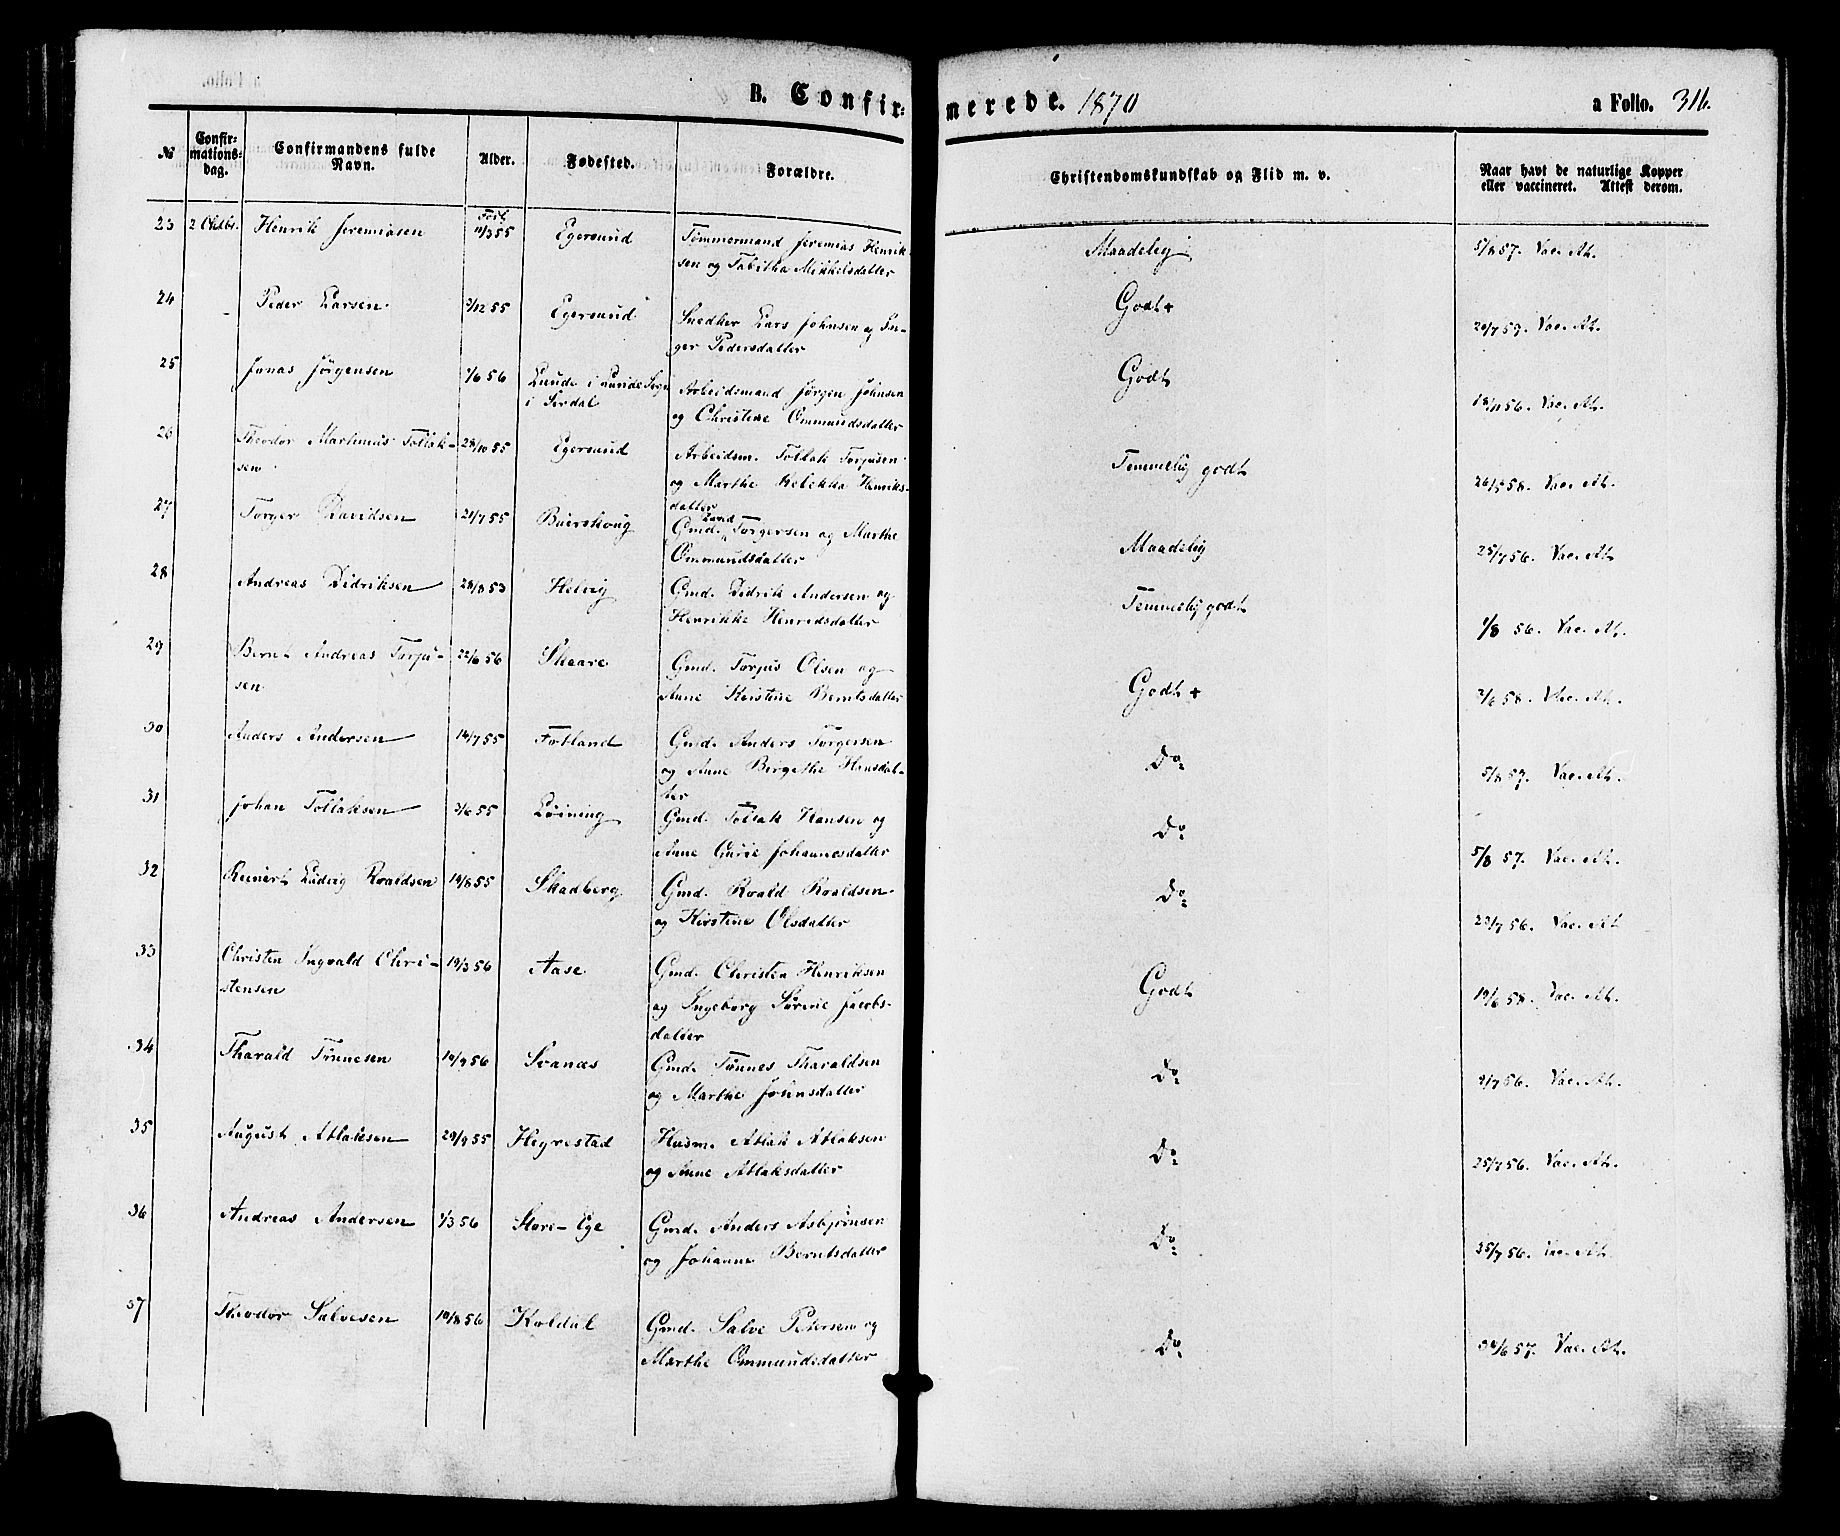 B. Confirmerede. 1870 a Folio. 316.
№ Confirmationsdag. Confirmandens fulde Navn. Alder. Fødested. Forældre. Christendomskundskab og Flid m. v. Naar havt de naturlige Kopper eller vaccineret. Attest derom.
23 2 Octbr. Henrik Jeremiasen Født 11/3 55 Egersund Tømmermand Jeremias Henrik- Maadelig 5/8 57. Vac. At.
sen og Tabitha Mikkelsdatter
24 Peder Larsen 2/12 55 Egersund Snedker Lars Johnsen og In- Godt + 20/7 59. Vac. At.
ger Pedersdatter
25 Jonas Jørgensen 1/6 56 Lunde i Lunde Sogn Arbeidsmand Jørgen Johnsen Godt 18/11 56. Vac. At.
i Sirdal og Christine Ommundsdatter
26 Theodor Martinius Tollak- 28/10 55 Egersund Arbeidsm. Tollak Torjusen Temmelig godt 26/5 58. Vac. At.
sen og Marthe Rebekka Henriks-
datter
27 Torger Davidsen 21/7 55 Bøirskoug Gmd. David Torgersen og Marthe Maadelig 25/7 56. Vac. At
Ommundsdatter
28 Andreas Didriksen 28/8 53 Helvig Gmd. Didrik Andersen og Temmelig godt 1/8 56. Vac. At.
Henrikke Henriksdatter
29 Bernt Andreas Torju- 22/6 56 Skaare Gmd. Torjus Olsen og Godt + 2/6 58. Vac. At.
sen Anne Kristine Berntsdatter
30 Anders Andersen 14/7 55 Fotland Gmd. Anders Torgersen Do. 5/8 57. Vac. At.
og Anne Bergethe Hansdat-
ter
31 Johan Tollaksen 3/6 55 Løining Gmd. Tollak Hansen og Do. 5/8 57. Vac. At.
Anne Gurie Johannesdatter
32 Reinert Ludvig Roaldsen 14/8 55 Skadberg Gmd. Roald Roaldsen Do. 23/7 56. Vac. At
og Kirstine Olsdatter
33 Christen Ingvald Chri- 19/3 56 Aase Gmd. Christen Henriksen Godt 19/6 58. Vac. At.
stensen og Ingeborg Sørine Jacobs-
datter
34 Tharald Tønnesen 10/9 56 Svanæs Gmd. Tønnes Tharaldsen Do. 9/7 56. Vac. At.
og Marthe Johnsdatter
35 August Atlaksen 29/9 55 Hegrestad Husm. Atlak Atlaksen Do. 25/7 56. Vac. At.
og Anne Atlaksdatter
36 Andreas Andersen 1/3 56 Store-Ege Gmd. Anders Asbjørnsen Do. 25/7 56. Vac. At.
og Johanne Berntsdatter
37 Theodor Salvesen 10/8 56 Koldal Gmd. Salve Petersen og Do. 30/6 57. Vac. At.
Marthe Ommundsdatter